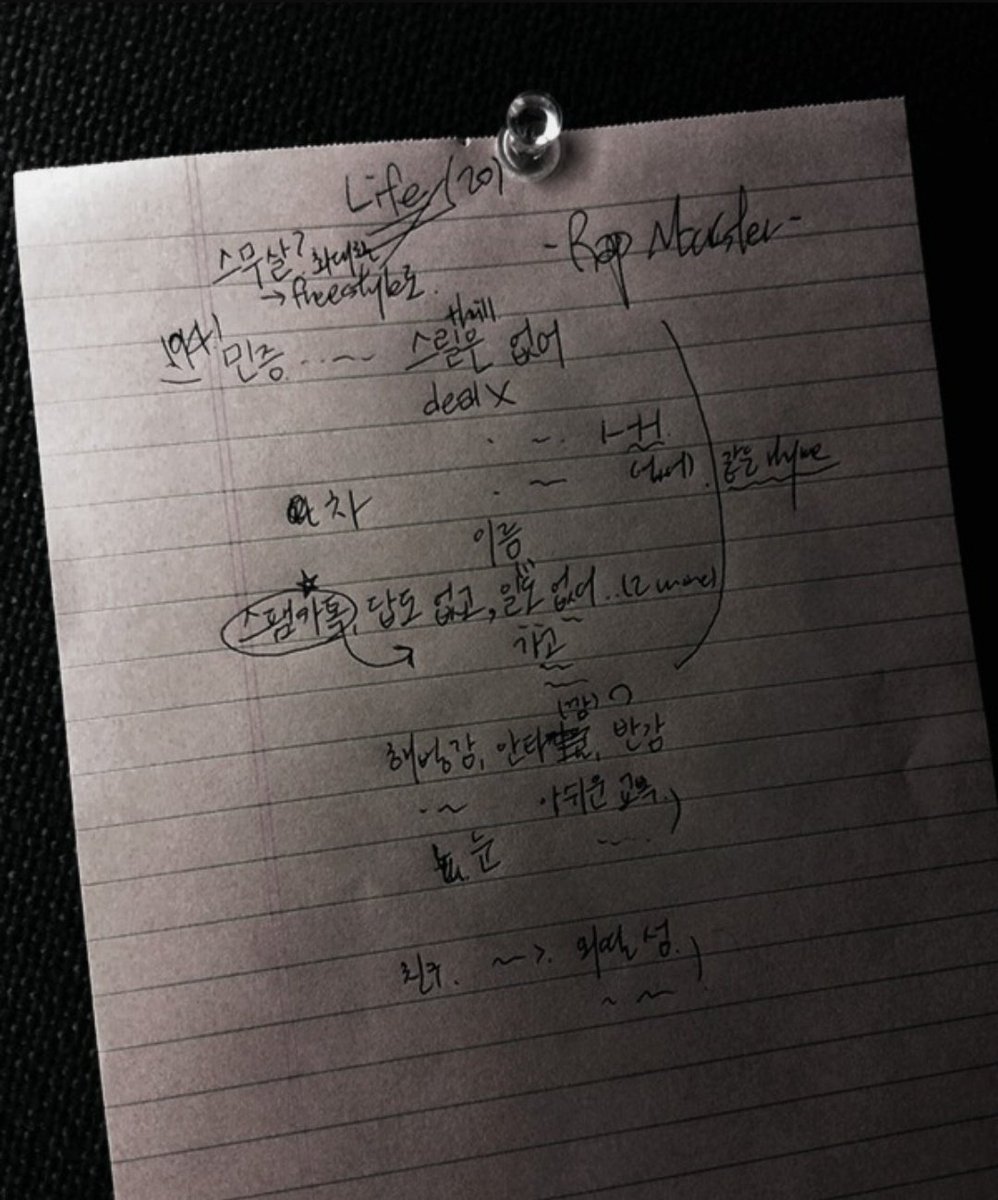 Life (20)
- Rap Monster -
스무살? 최대한
→ freestyle로.
19살! 민증 ... ~ 스릴은 없어
deal X
. ~. ㅓㅐ
(없어). 같은 rhyme
차 . ~
이름
☆
스팸카톡, 답도 없고, 일도 없어 .. (2 more)
가고
(깡)
해방감, 안타, 반감
. ~ 아쉬운
눈 ~
친구. ~>. 외딴 섬.
~ ~